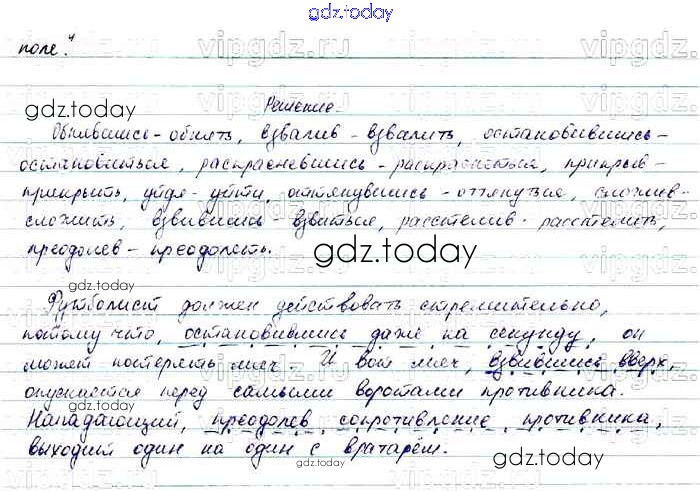 gdz.today
поле".
vipgdz.ru vipgdz.ru vipgdz.ru
gdz.today
Решение.
Обнявшись - обнять, взвалив - взвалить, остановившись -
остановиться, раскрасневшись - раскраснеться, прикрыв -
прикрыть, уйдя - уйти, оттянувшись - оттянуться, сложив -
сложить, взвившись - взвиться, расстелив - расстелить,
преодолев - преодолеть.
gdz.today
Футболист должен действовать стремительно,
потому что, остановившись даже на секунду, он
может потерять мяч. И вот мяч, взвившись вверх,
опускается перед самыми воротами противника.
gdz.today
Нападающий, преодолев сопротивление противника,
выходит один на один с вратарём.
gdz.today
gdz.today